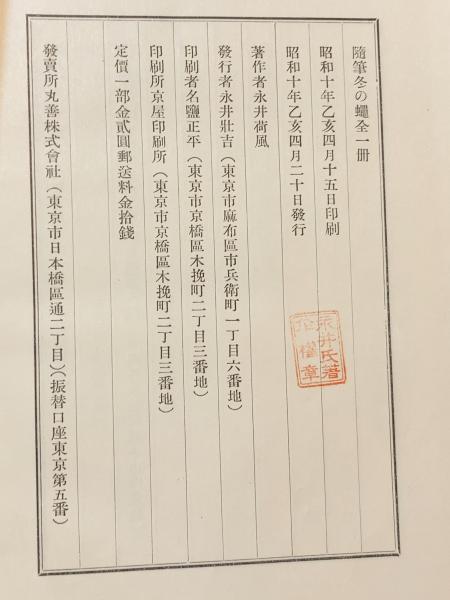 隨筆冬の蠅全一册
昭和十年乙亥四月十五日印刷
昭和十年乙亥四月二十日發行
著作者永井荷風
發行者永井壯吉（東京市麻布區市兵衞町一丁目六番地）
印刷者名鹽正平（東京市京橋區木挽町二丁目三番地）
印刷所京屋印刷所（東京市京橋區木挽町二丁目三番地）
定價一部金貳圓郵送料金拾錢
發賣所丸善株式會社（東京市日本橋區通二丁目）（振替口座東京第五番）
永井氏著
作權章